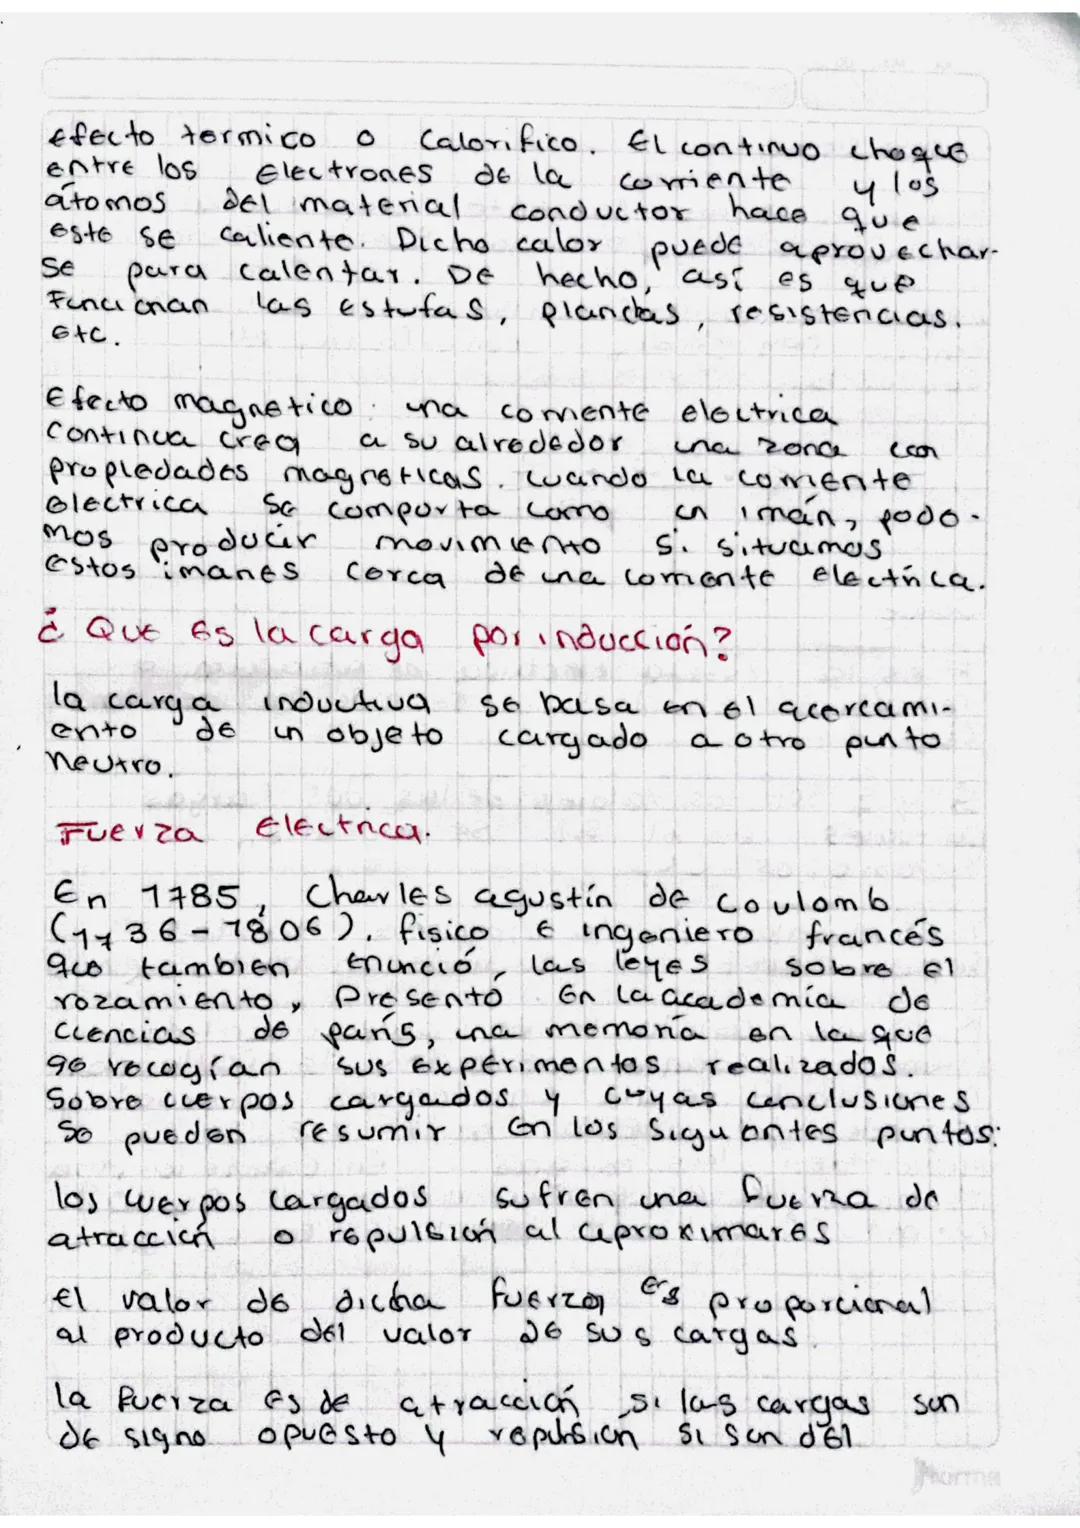 efecto termico o Calorifico. El continuo choque
entre los electrones de la corriente y los
átomos del material conductor hace que
este se caliente. Dicho calor puede aprovechar-
se para calentar. De hecho, así es que
Funcionan las estufas, planchas, resistencias.
etc.
Efecto magnetico: una corriente electrica
continua crea a su alrededor una zona con
propiedades magneticas. cuando la corriente
electrica se comporta como un imán, pode-
mos producir movimiento si situamos
estos imanes cerca de una corriente electrica.
¿Que es la carga por inducción?
la carga inductiva se basa en el acercami-
ento de un objeto cargado a otro punto
neutro.
Fuerza Electrica.
En 1785, Charles agustín de coulomb
(1736-1806), fisico e ingeniero francés
que tambien enunció, las leyes sobre el
rozamiento, Presentó en la academia de
ciencias de parís, una memoria en la que
se recogían sus experimentos realizados.
Sobre cuerpos cargados y cuyas conclusiones
se pueden resumir en los siguientes puntos:
los cuerpos cargados sufren una fuerza de
atracción o repulsión al aproximares
el valor de dicha fuerza es proporcional
al producto del valor de sus cargas.
la fuerza es de atracción si las cargas son
de signo opuesto y repulsion si son del
norma